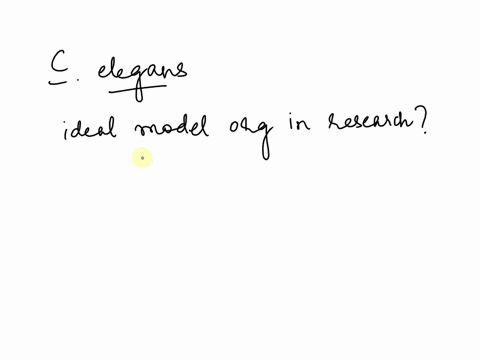 C. elegans
ideal model org in research?